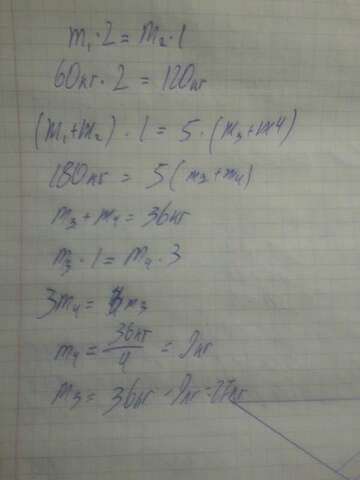 m₁·2 = m₂·1
60кг·2 = 120кг
(m₁+m₂)·1 = 5·(m₃+m4)
180кг = 5(m₃+m₄)
m₃+m₄ = 36кг
m₃·1 = m₄·3
3m₄ = m₃
m₄ = 36кг/4 = 9кг
m₃ = 36кг - 9кг = 27кг